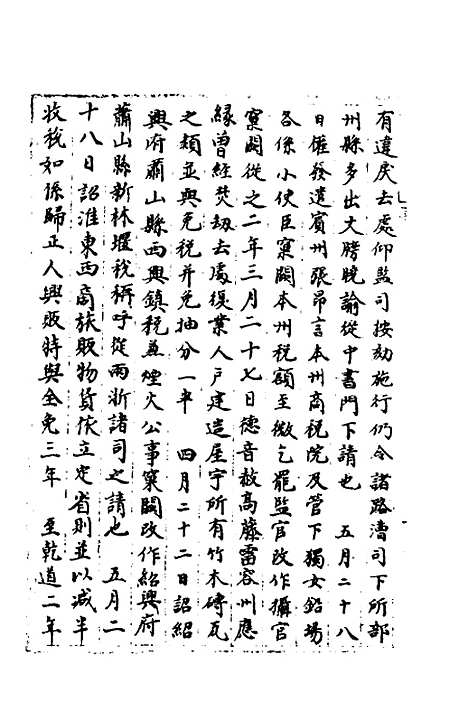 有違戾去處仰監司按劾施行仍令諸路漕司下所部
州縣多出大牓曉諭從中書門下請也　五月二十八
日權發遣賓州張昂言本州商稅院及管下獨女鉛場
各係小使臣窠闕本州稅額至微乞罷監官改作攝官
窠闕從之二年三月二十七日德音赦高藤雷容州應
緣曾經焚劫去處復業人戶建造屋宇所有竹木磚瓦
之類並與免稅并免抽分一半　四月二十二日詔紹
興府蕭山縣西興鎮稅兼煙火公事窠闕改作紹興府
蕭山縣新林堰稅稱呼從兩浙諸司之請也　五月二
十八日詔淮東西商旅販物貨依立定省則並以減半
收稅如係歸正人興販特與全免三年　至乾道二年